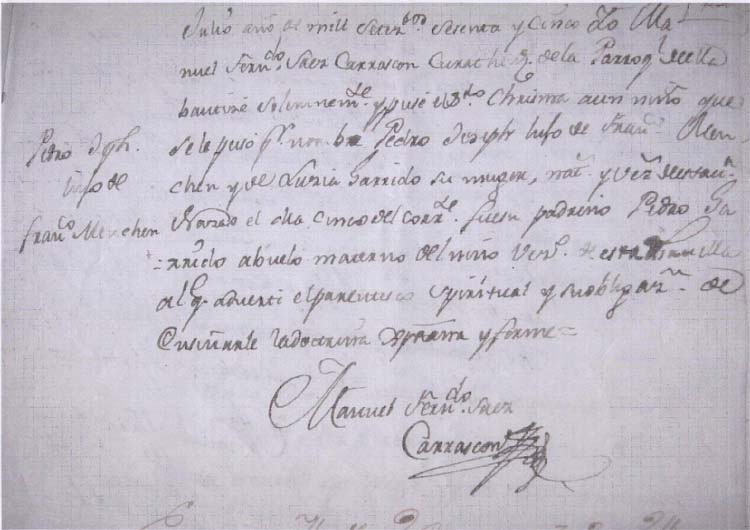 Julio año de mill Setez.tos Sesenta y Cinco Yo Ma
nuel Fern.do Saez Carrascon Cura the.te de la Parroq.l de ella
bautize solemnem.te y puse el S.to Chrisma a un niño que
Pedro Jph. hijo de Fran.co Menchen
se le puso p.r nombre Pedro Joseph hijo de Fran.co Men
chen y de Luzia Garrido su muger, nat.s y vez.s de esta
nazido el dia Cinco del corr.te fue su padrino Pedro Ga
rrido abuelo materno del niño vez.o de esta villa
al q.e adverti el parentesco Spiritual y su obligaz.n de
Enseñarle la doctrina Xptiana y firme =
Manuel Fern.do Saez
Carrascon